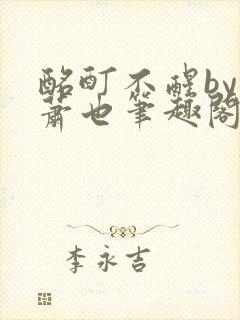 酩酊不醒by
萧也笔趣阁
李永吉